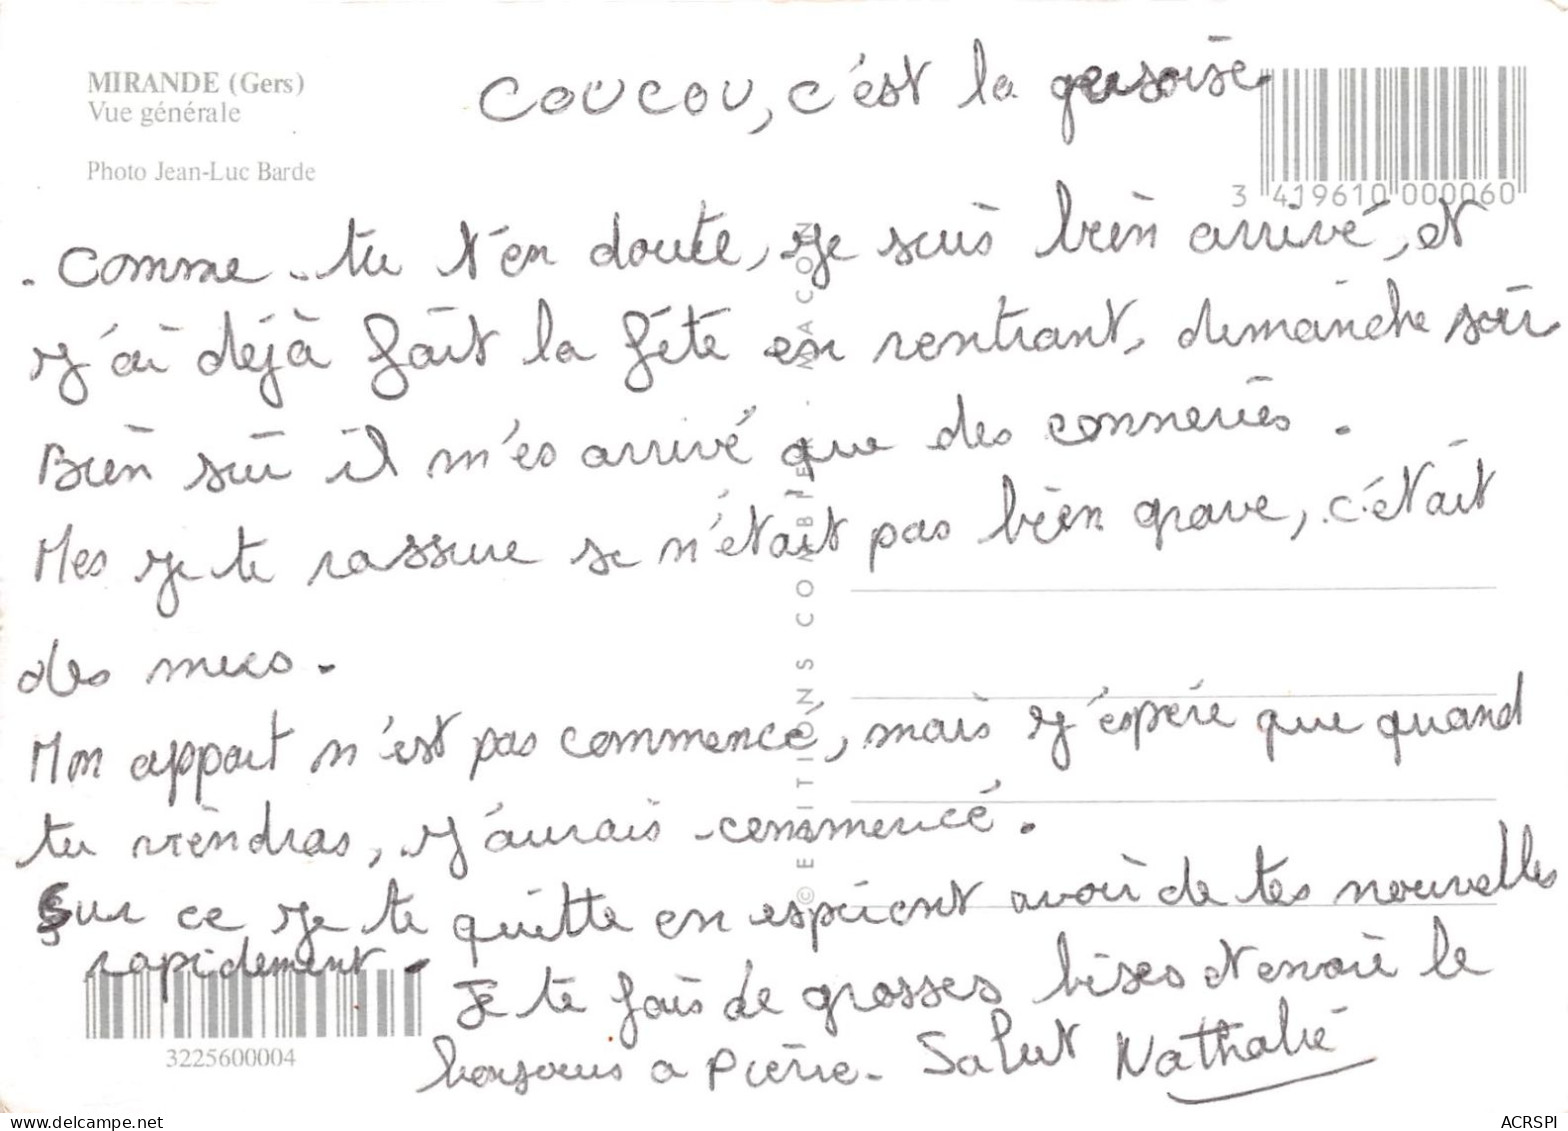 MIRANDE (Gers)
Vue générale
Photo Jean-Luc Barde
Coucou, c'est la gersoise
3 419610 000060
- Comme tu t'en doute, je suis bien arrivé, et
j'ai déjà fait la fête en rentrant, dimanche soir
Bien sûr il m'es arrivé que des conneries.
Mes je te rassure se n'était pas bien grave, c'était
des
Mon appart n'est pas commencé, mais j'espère que quand
tu viendras, j'aurais commencé.
Sur ce je te quitte en espérent avoir de tes nouvelles
rapidement.
Je te fais de grosses bises et envoie le
bonjours a Pierre. Salut Nathalie
3225600004
© EDITIONS COMBIER MACON
delcampe.net
ACRSPI